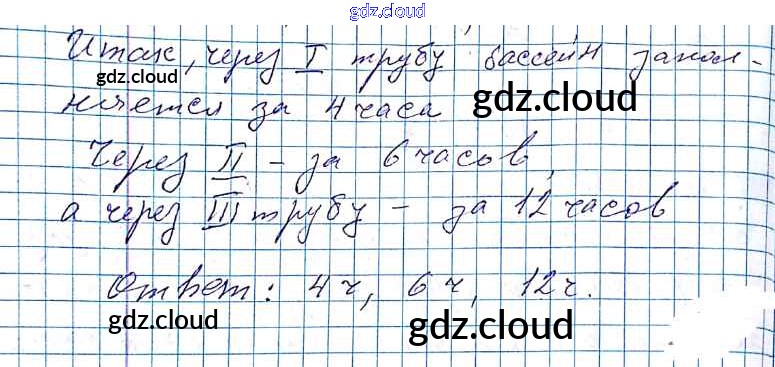 gdz.cloud
Итак, через I трубу бассейн запол-
gdz.cloud
няется за 4 часа gdz.cloud
Через II - за 6 часов,
а через III трубу - за 12 часов
Ответ: 4 ч, 6 ч, 12 ч.
gdz.cloud gdz.cloud